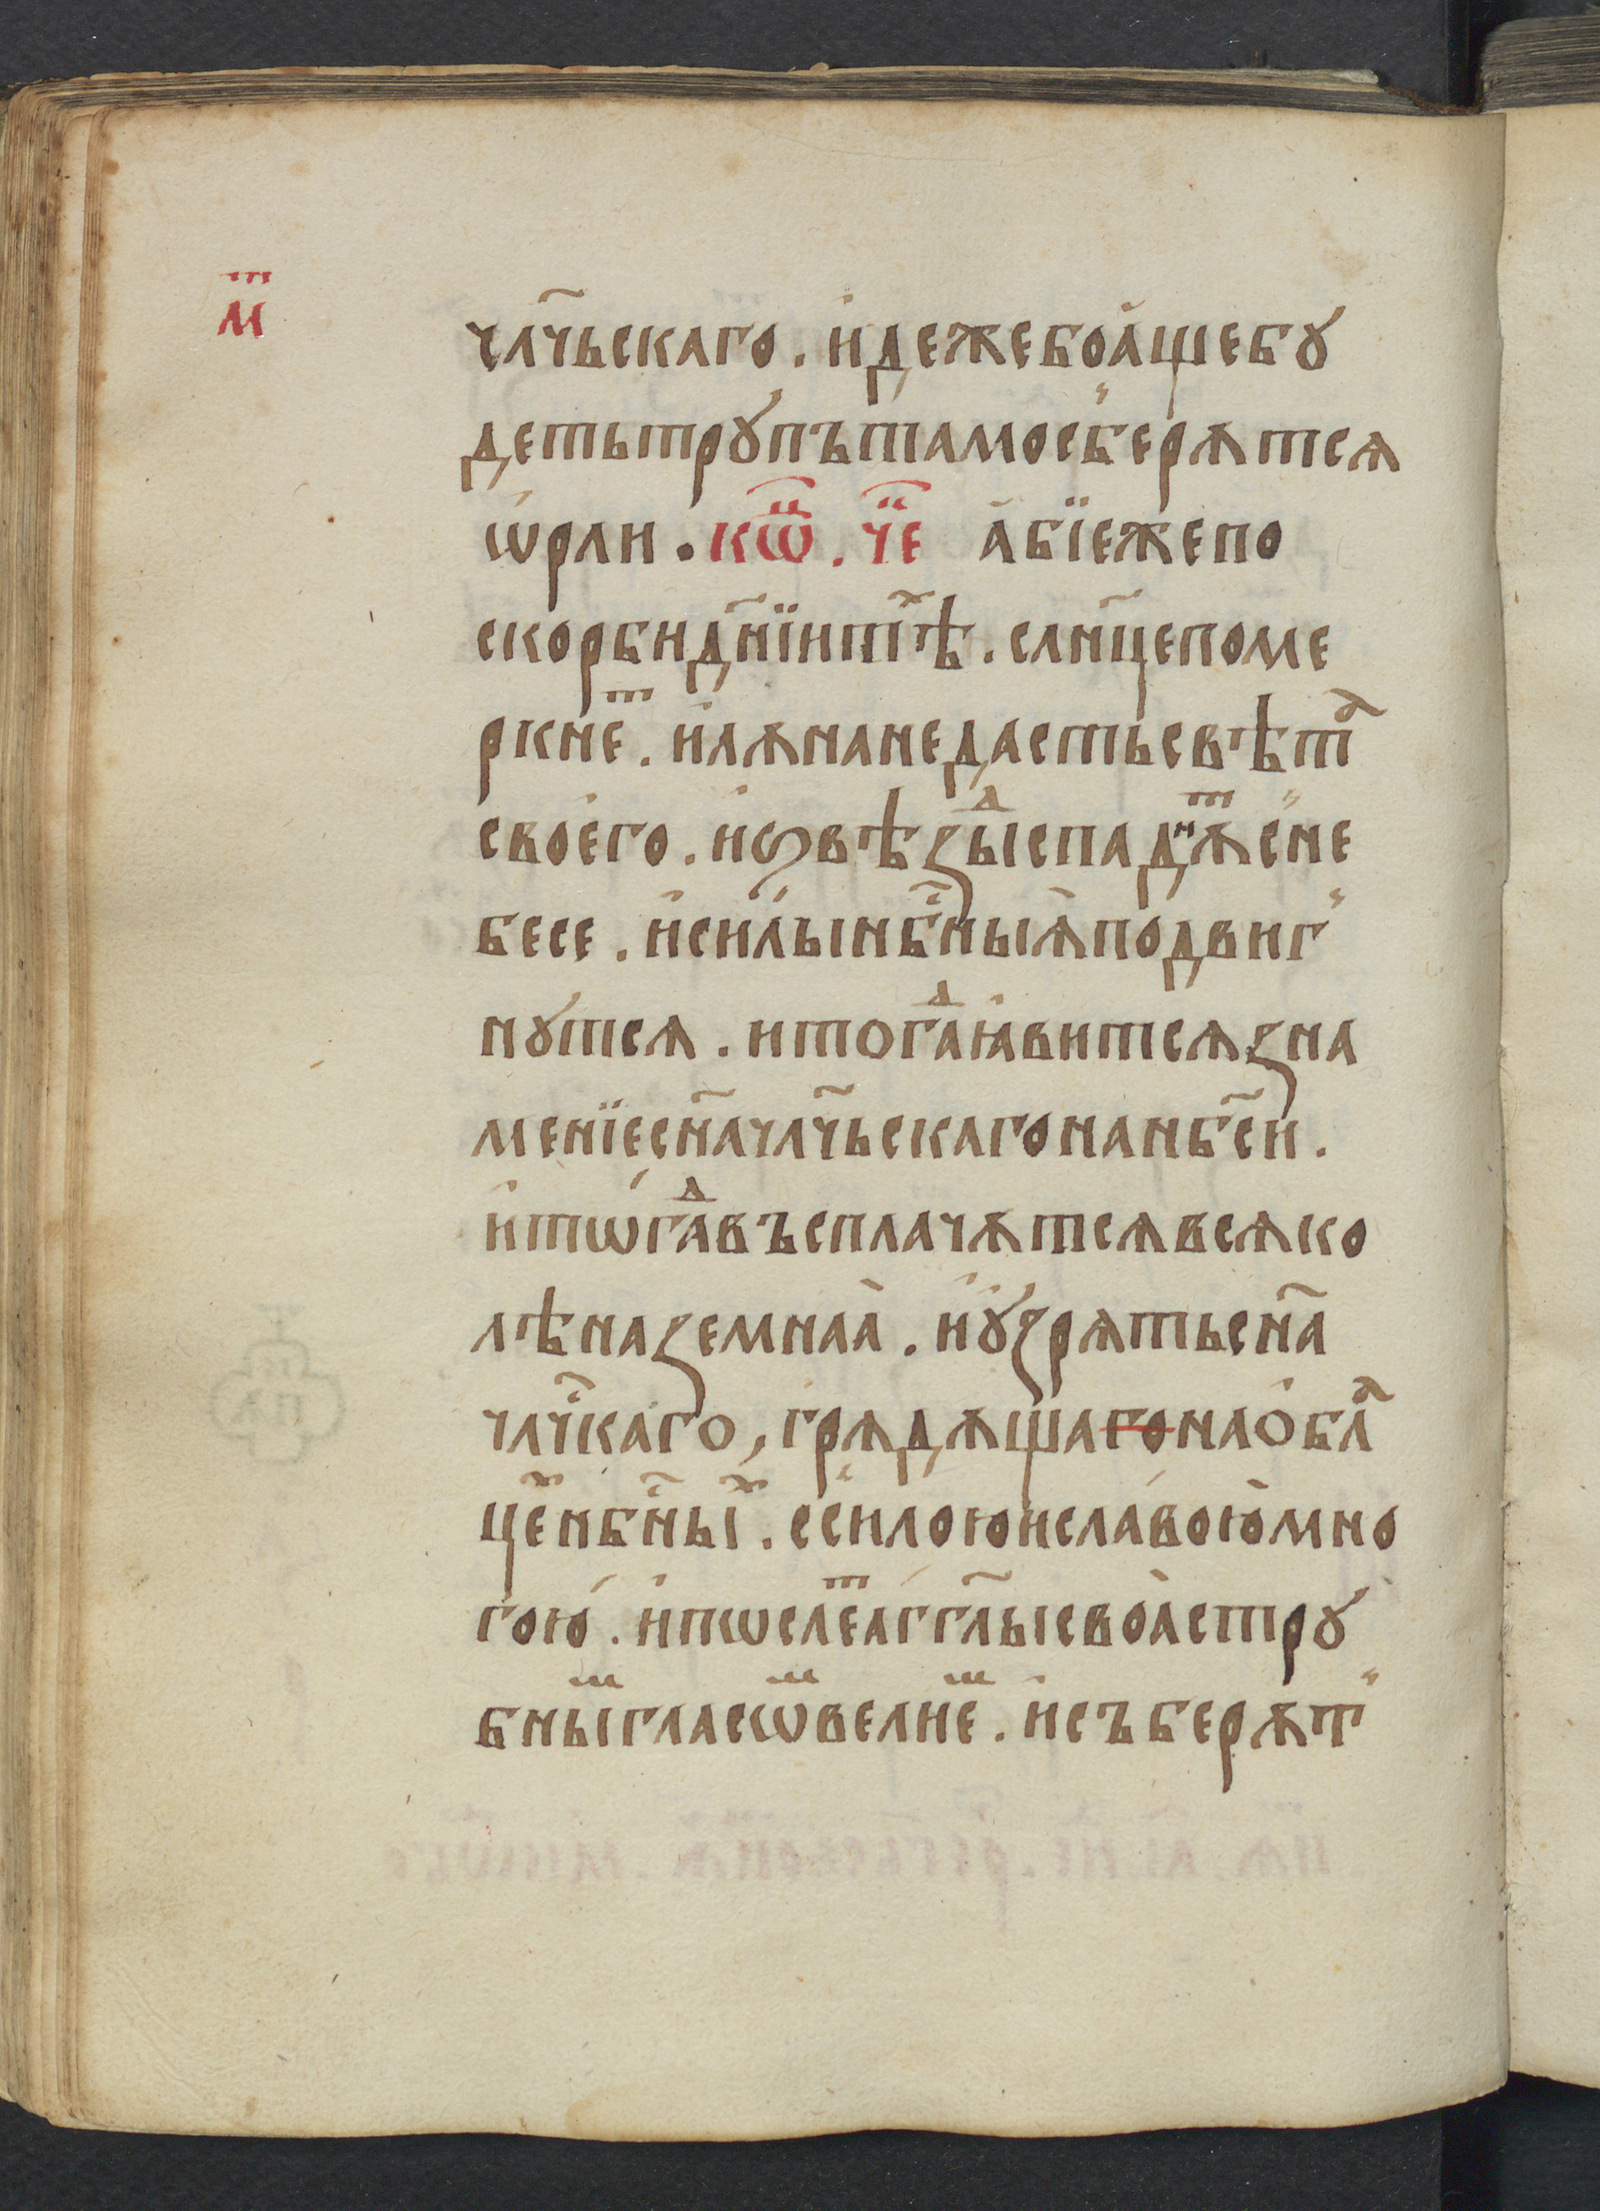 м҃ т
чл҃чьскаго . и҆дежебоа҆щебꙋ
детьтрꙋ́пътамосбⷭ҇ерѫтсѧ
ѡ҆рли . кѡⷩ҇ . чеⷮ а҆бїежепо
скорбидн҃їитѣⷯ . слн҃цепоме
ркнеⷮ . и҆лѫнанедастьсвѣтⷶ
свое҆го . и҆ѕвѣзⷣыспаднѫⷮсне
бесе . и҆си́лынб҃ныѧ҆подвиг
нꙋтсѧ . итогⷣаꙗ҆витсѧзна
менїесн҃ачл҃чьскагонанб҃си .
и҆тѡ́гⷣавъсплачѫтсѧвсѧко
лѣназемнаа҆ . и҆ꙋ҆зрѧтьсн҃а
чл҃чⷭ҇каго , грѧдѫщагонао҆блⷶ
цеⷯнб҃ныⷯ . сси́лоюи҆сла́вою҆мно
гою҆ . и҆пѡслеⷮа҆́гг҃лысвоа҆стрꙋ
бныⷨгласѡⷨвелиеⷨ . и҆съберѫт